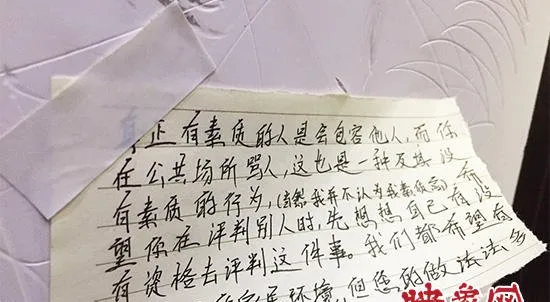 真正有素质的人是会包容他人,而你
在公共场所骂人,这也是一种及其没
有素质的行为,(当然我并不认为我素质高)希
望你在评判别人时,先想想自己有没
有资格去评判这件事。我们都希望有
环境,但您的做法
映象网